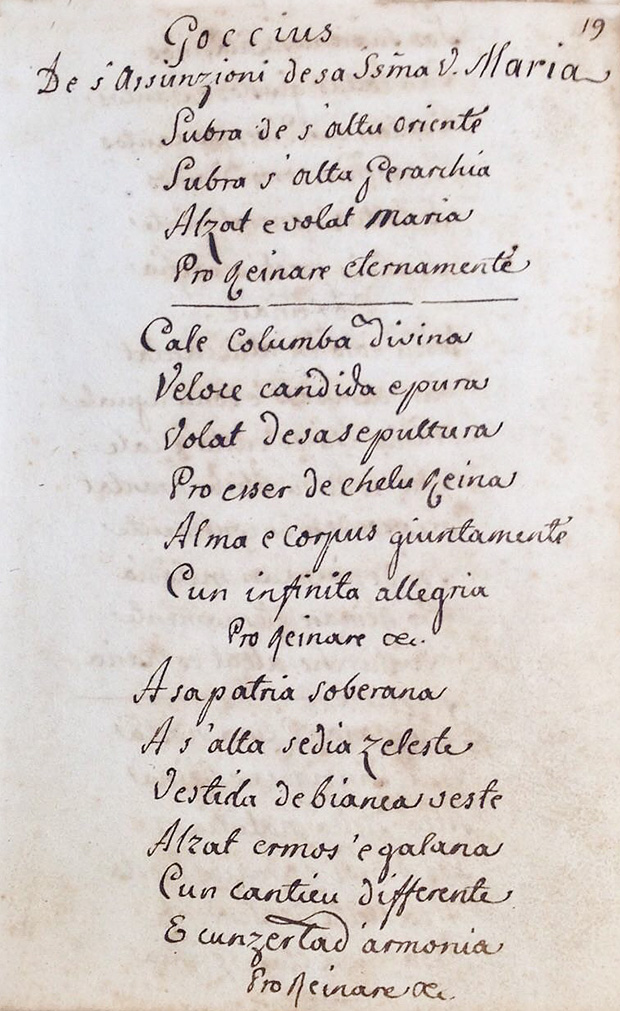 19
Goccius
De s'Assunzioni de sa Ssma V. Maria
Subra de s'altu oriente
Subra s'alta Gerarchia
Alzat e volat Maria
Pro Reinare eternamente
Cale Columba divina
Veloce candida e pura
Volat de sa sepultura
Pro esser de chelu Reina
Alma e Corpus giuntamente
Cun infinita allegria
Pro Reinare &c.
A sa patria soberana
A s'alta sedia zeleste
Vestida de bianca veste
Alzat ermos'e galana
Cun canticu differente
E cunzertad'armonia
Pro Reinare &c.